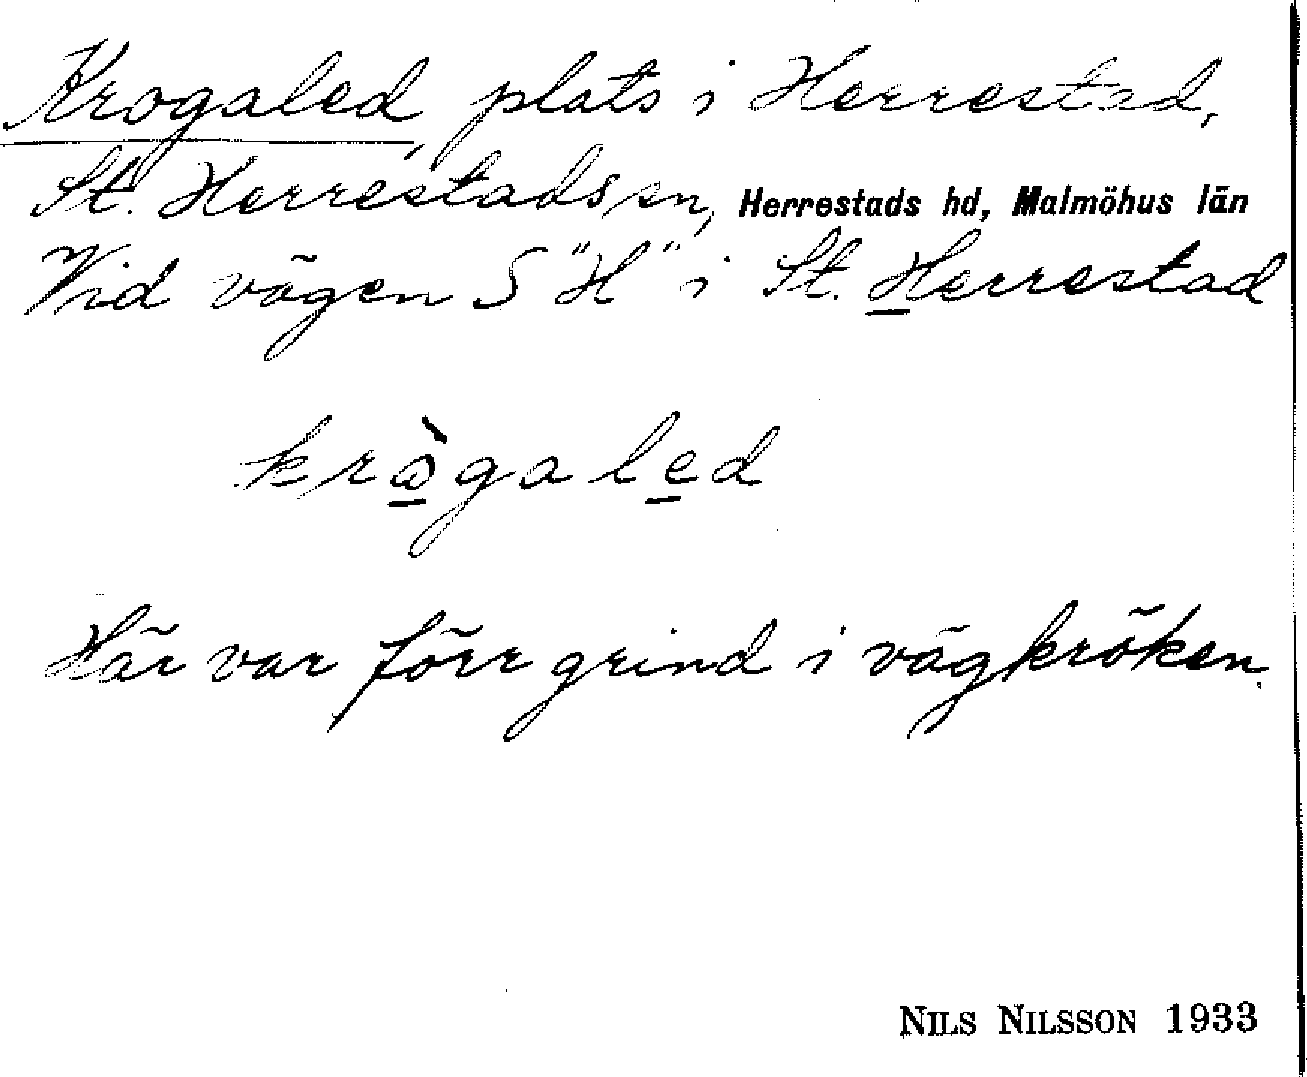 Krogaled, plats i Herrestad,
St. Herrestads sn, Herrestads hd, Malmöhus län
Vid vägen S "H" i St. Herrestad
krὼgaled
Här var förr grind i vägkröken.
NILS NILSSON 1933